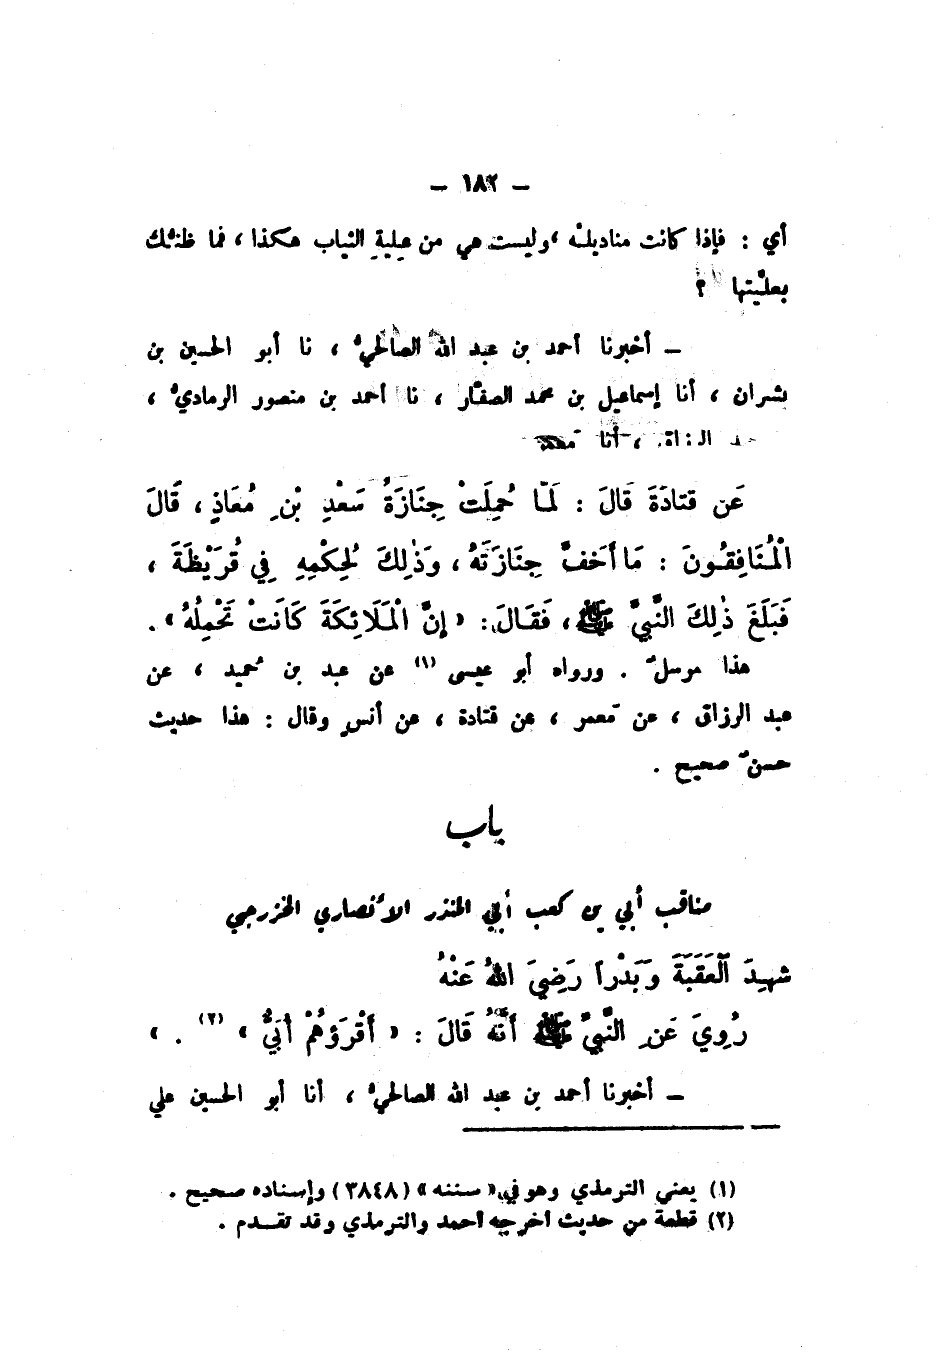 – ١٨٢ –
أي : فإذا كانت مناديله ، وليست هي من علية الثياب هكذا ، فما ظنك
بعليتها ؟
– أخبرنا أحمد بن عبد الله الصالحيُ ، نا أبو الحسين بن
بشران ، أنا إسماعيل بن محمد الصفار ، نا أحمد بن منصور الرماديُ ،
، أنا
عَن قتادَةَ قالَ : لَمَّا حُمِلَتْ جِنَازَةُ سَعْدِ بْنِ مُعَاذٍ ، قَالَ
الْمُنَافِقُونَ : مَا أَخَفَّ جِنَازَتَهُ ، وَذٰلِكَ لِحُكْمِهِ فِي قُرَيْظَةَ ،
فَبَلَغَ ذٰلِكَ النَّبِيَّ ﷺ ، فَقَالَ : « إِنَّ الْمَلَائِكَةَ كَانَتْ تَحْمِلُهُ » .
هذا مرسلٌ . ورواه أبو عيسى (١) عن عبد بن حُميد ، عن
عبد الرزاق ، عن مَعمر ، عن قتادة ، عن أنسٍ وقال : هذا حديث
حسنٌ صحيح .
باب
مناقب أبي بن كعب أبي المنذر الأنصاري الخزرجي
شهِدَ الْعَقَبَةَ وَبَدْراً رَضِيَ اللهُ عَنْهُ
رُوِيَ عَنِ النَّبِيِّ ﷺ أَنَّهُ قَالَ : « أَقْرَؤُهُمْ أُبَيٌّ » (٢) . »
– أخبرنا أحمد بن عبد الله الصالحيُ ، أنا أبو الحسين علي
(١) يعني الترمذي وهو في « سننه » ( ٣٨٤٨ ) وإسناده صحيح .
(٢) قطعة من حديث أخرجه أحمد والترمذي وقد تقدم .